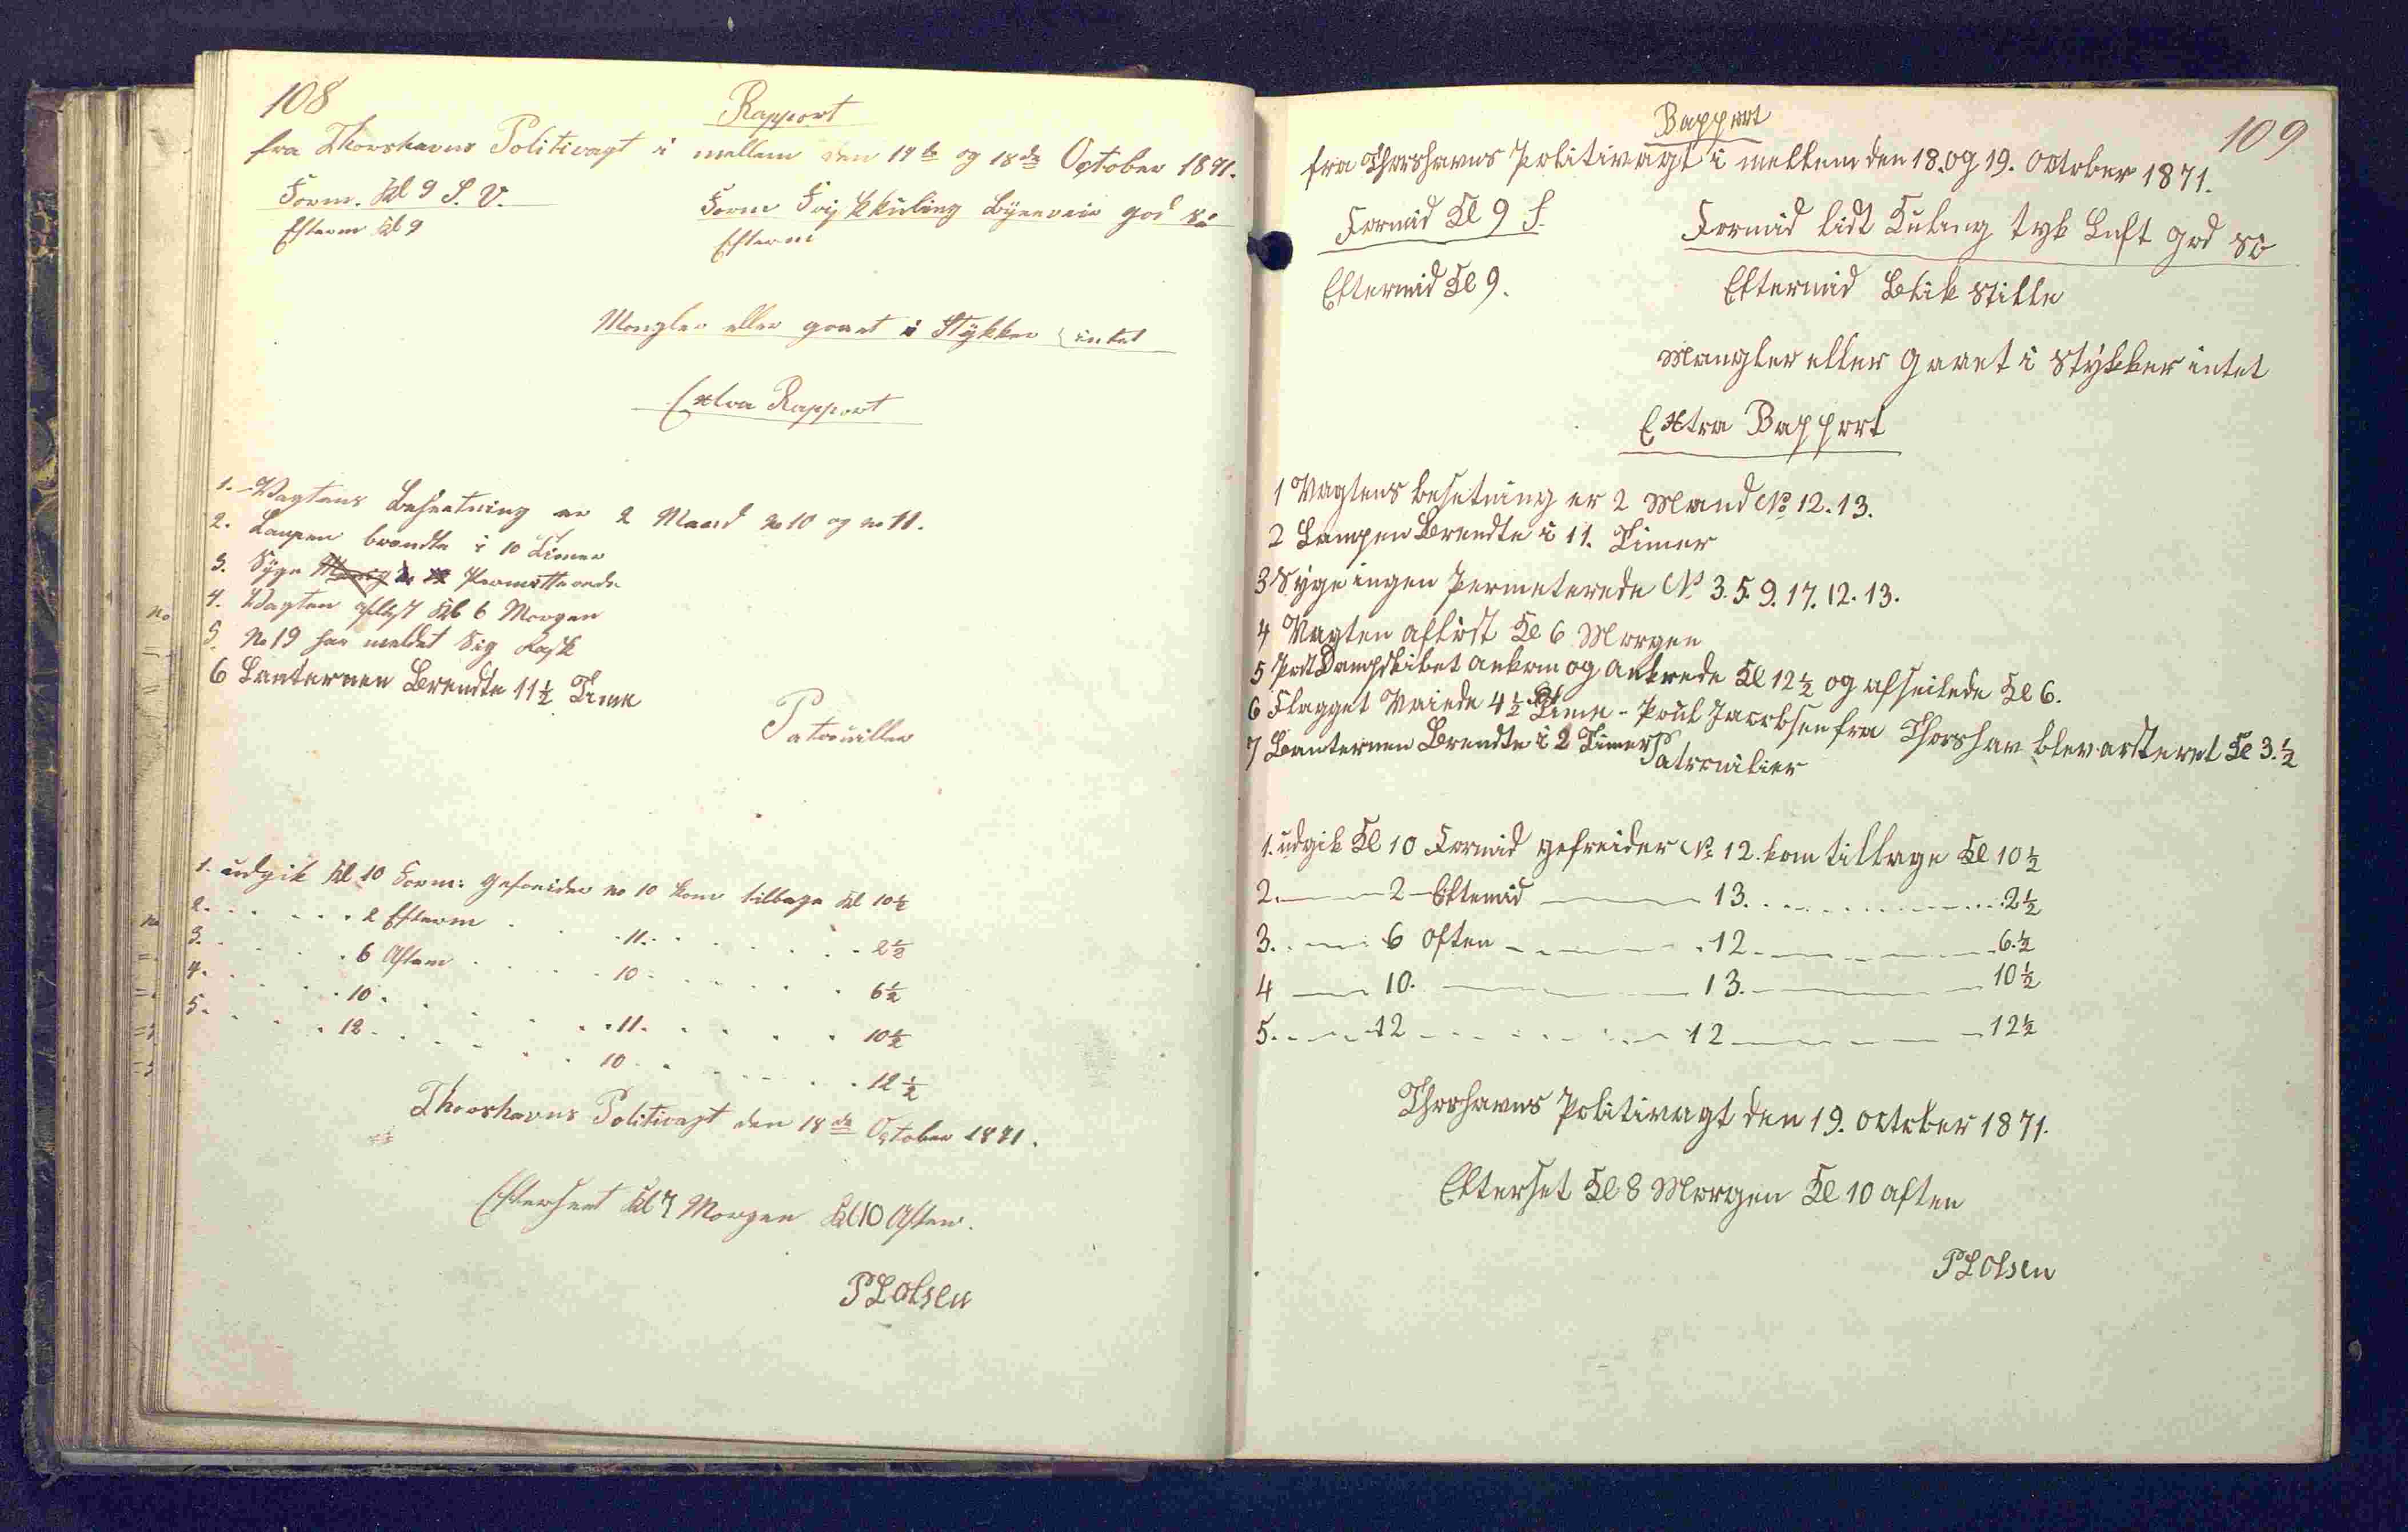 108
Rapport
fra Thorshavns Politivagt i mellem den 17de og 18de October 1871.
Form. Kl 9 S. V.
Form Frisk Kuling Byeveir god Sø
Efterm Kl 9
Efterm
Mangler eller gaaet i Stykker intet
Extra Rapport
1. Vagtens Besætning er 2 Mand No 10 og no 11.
2. Lampen brændte i 10 Timer
3. Syge Permitterede
4. Vagten afløst Kl 6 Morgen
5. No 19 har meldt Sig Rask
6 Lanternen Brendte 11½ Time
Patrouiller
1. udgik Kl 10 Form: Gefreider no 10 kom tilbage Kl 10½
2. . . . . . 2 Efterm . . . 11. . . . . . 2½
3. . . . . 6 Aften . . . . 10 . . . . . 6½
4. . . . . 10. . . . . . 11. . . . . . 10½
5. . . . . 12. . . . . . 10 . . . . . . 12½
Thorshavns Politivagt den 18de October 1871.
Efterseet Kl 7 Morgen Kl 10 Aften.
P L Olsen
109
Rapport
fra Thorshavns Politivagt i mellem den 18. og 19. October 1871.
Formid Kl 9 S.
Formid lidt Kuling tyk Luft god Sø
Eftermid Kl 9.
Eftermid Blik Stille
Mangler eller Gaaet i Stykker intet
Extra Rapport
1 Vagtens besetning er 2 Mand No 12. 13.
2 Lampen Brendte i 11. Timer
3 Syge ingen Permeterede No 3. 5. 9. 17. 12. 13.
4 Vagten afløst Kl 6 Morgen
5 Post Dampskibet Ankom og Ankrede Kl 12½ og afseilede Kl 6.
6 Flagget Vaiede 4½ Time - Poul Jacobsen fra Thorshav blev arsteret Kl 3.½
7 Lanternen Brendte i 2 Timer
Patrouilier
1. udgik Kl 10 Formid gefreider No 12. kom tilbage Kl 10½
2. — 2 — Eftemid — 13. . . . . . 2½
3. . — 6 Often — 12 — 6.½
4 — 10. — 13. — 10½
5. — 12 — 12 — 12½
Thorshavns Politivagt den 19. October 1871.
Efterset Kl 8 Morgen Kl 10 aften
P L Olsen